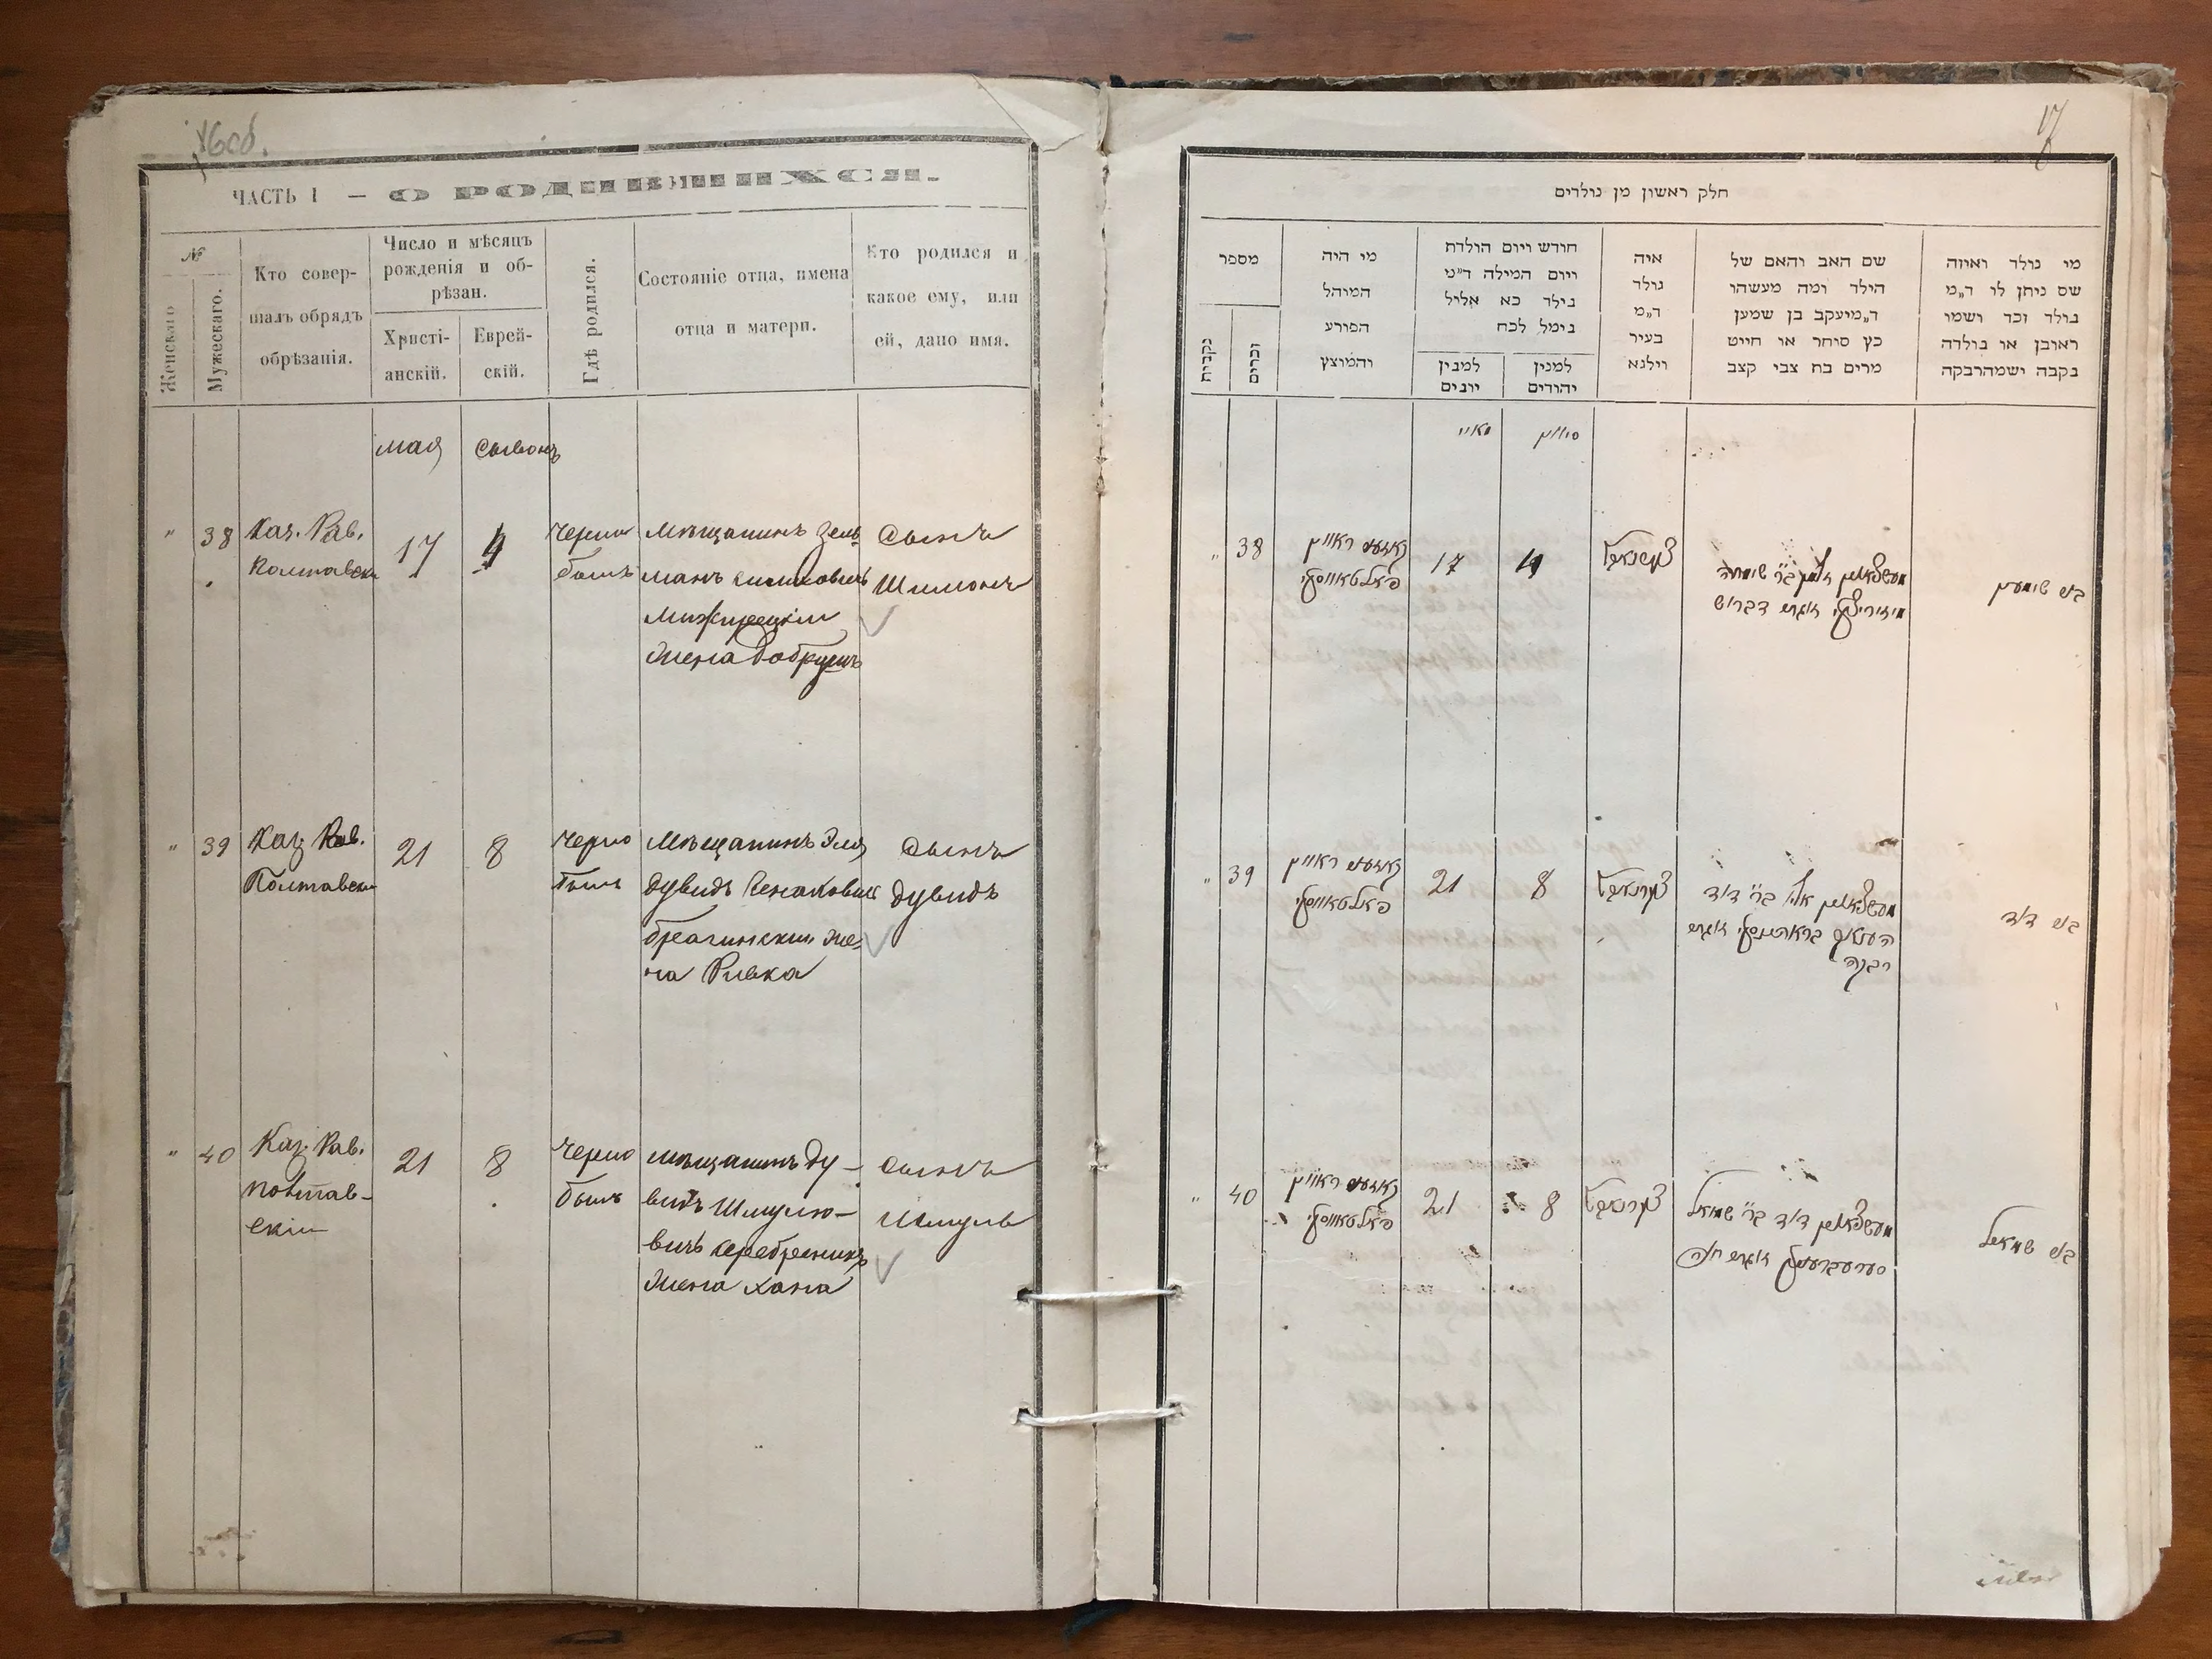 16об.
ЧАСТЬ I — О РОДИВШИХСЯ.
№
Женскаго
Мужескаго.
Кто совер-
шалъ обрядъ
обрѣзанія.
Число и мѣсяцъ
рожденія и об-
рѣзан.
Христі-
анскій.
Еврей-
скій.
Гдѣ родился.
Состояніе отца, имена
отца и матери.
Кто родился и
какое ему, или
ей, дано имя.
мая
Сывонъ
" 38
Каз. Рав.
Полтавски
17
4
Черно
быль
Мѣщанинъ Зель-
манъ
Мижирецкій
жена Добрушъ
Сынъ
Шимонъ
" 39
Каз. Рав.
Полтавски
21
8
Черно
быль
Мѣщанинъ Эля
Дувидъ Генаховичъ
Брагинскій же-
на Ривка
Сынъ
Дувидъ
" 40
Каз. Рав.
Полтав-
скій
21
8
Черно
быль
Мѣщанинъ Ду-
видъ Шмулю-
вичъ Серебреникъ
жена Хана
Сынъ
Шмуль
17
חלק ראשון מן נולדים
מספר
נקבות
זכרים
מי היה
המוהל
הפורע
והמוצץ
חודש ויום הולדת
ויום המילה ד״מ
נילד כא אליל
נימל לכח
למנין
יהודים
למנין
יונים
איה
נולד
ד״מ
בעיר
ווילנא
שם האב והאם של
הילד ומה מעשהו
ד״מ יעקב בן שמען
כץ סוחר או חייט
מרים בת צבי קצב
מי נולד ואיזה
שם ניתן לו ד״מ
נולד זכר ושמו
ראובן או נולדה
נקבה ישמה רבקה
סיון
מאיי
" 38
קאזענע ראויין
פאלטאווסקי
17
4
צערנאבל
מעשצאנין זלמן בר׳ שמחה
מיזיריצקי זוגתו דברוש
בנו שמעון
" 39
קאזענע ראויין
פאלטאווסקי
21
8
צערנאבל
מעשצאנין אלי׳ בר׳ דוד
העניך בראהינסקי זוגתו
רבקה
בנו דוד
" 40
קאזענע ראויין
פאלטאווסקי
21
8
צערנאבל
מעשצאנין דוד בר׳ שמואל
סערעברעניק זוגתו חנה
בנו שמואל